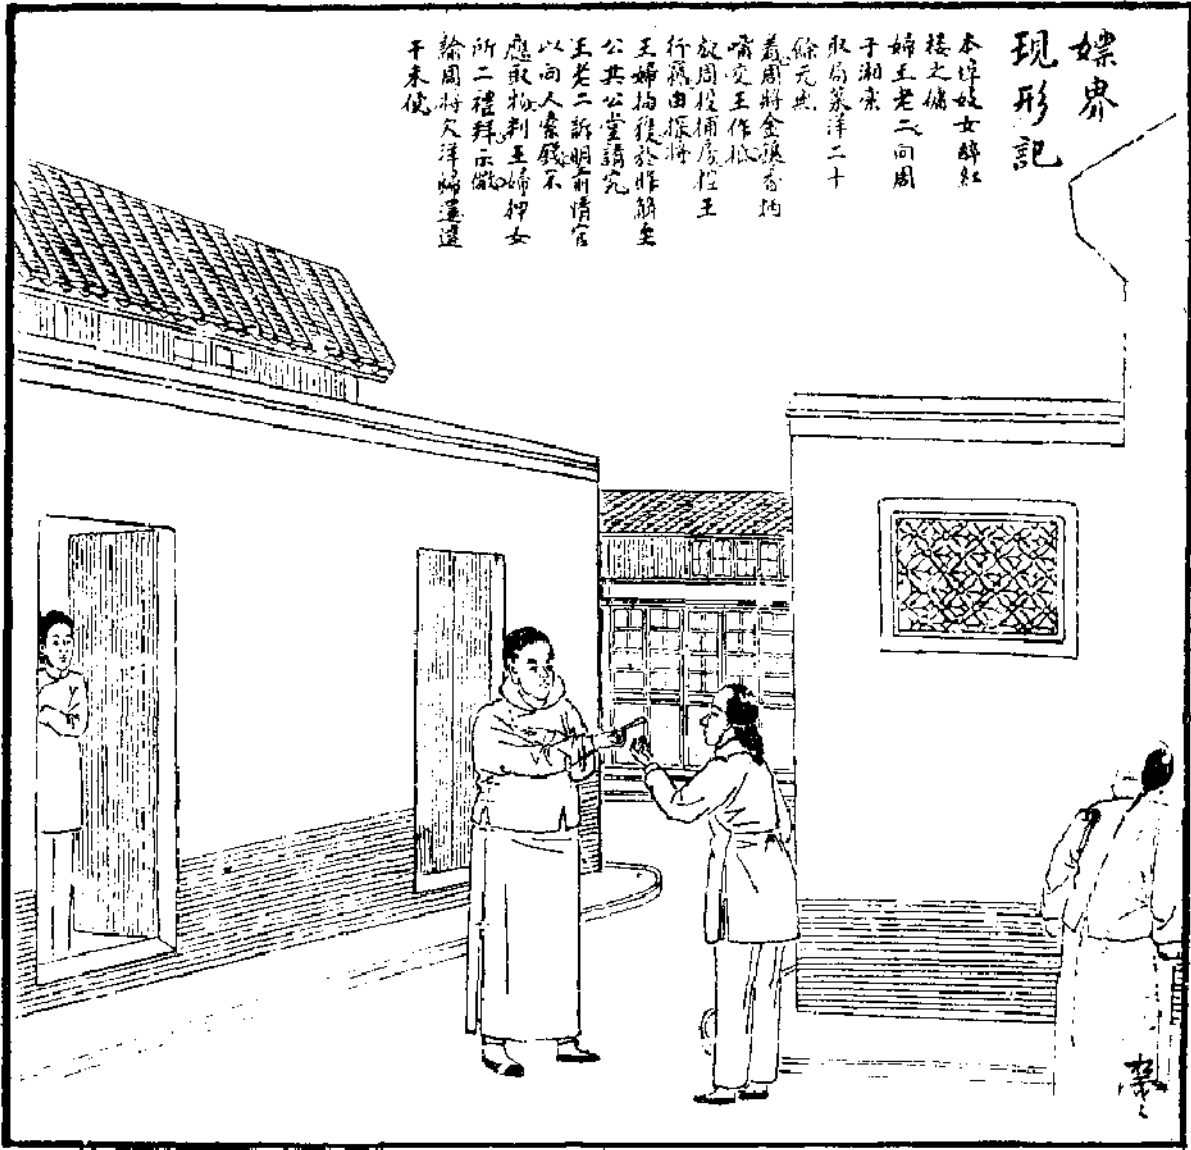 嫖界
现形記
本埠妓女醉紅
樓之傭
婦王老二向周
子湘索
取局菜洋二十
餘元無
着周將金鑲香烟
嘴交王作抵
詎周投捕房控王
行竊由探將
王婦拘獲於昨解至
公共公堂請究
王老二訴明前情官
以向人索錢不
應取物判王婦押女
所二禮拜示儆
諭周將欠洋歸還還
干未便